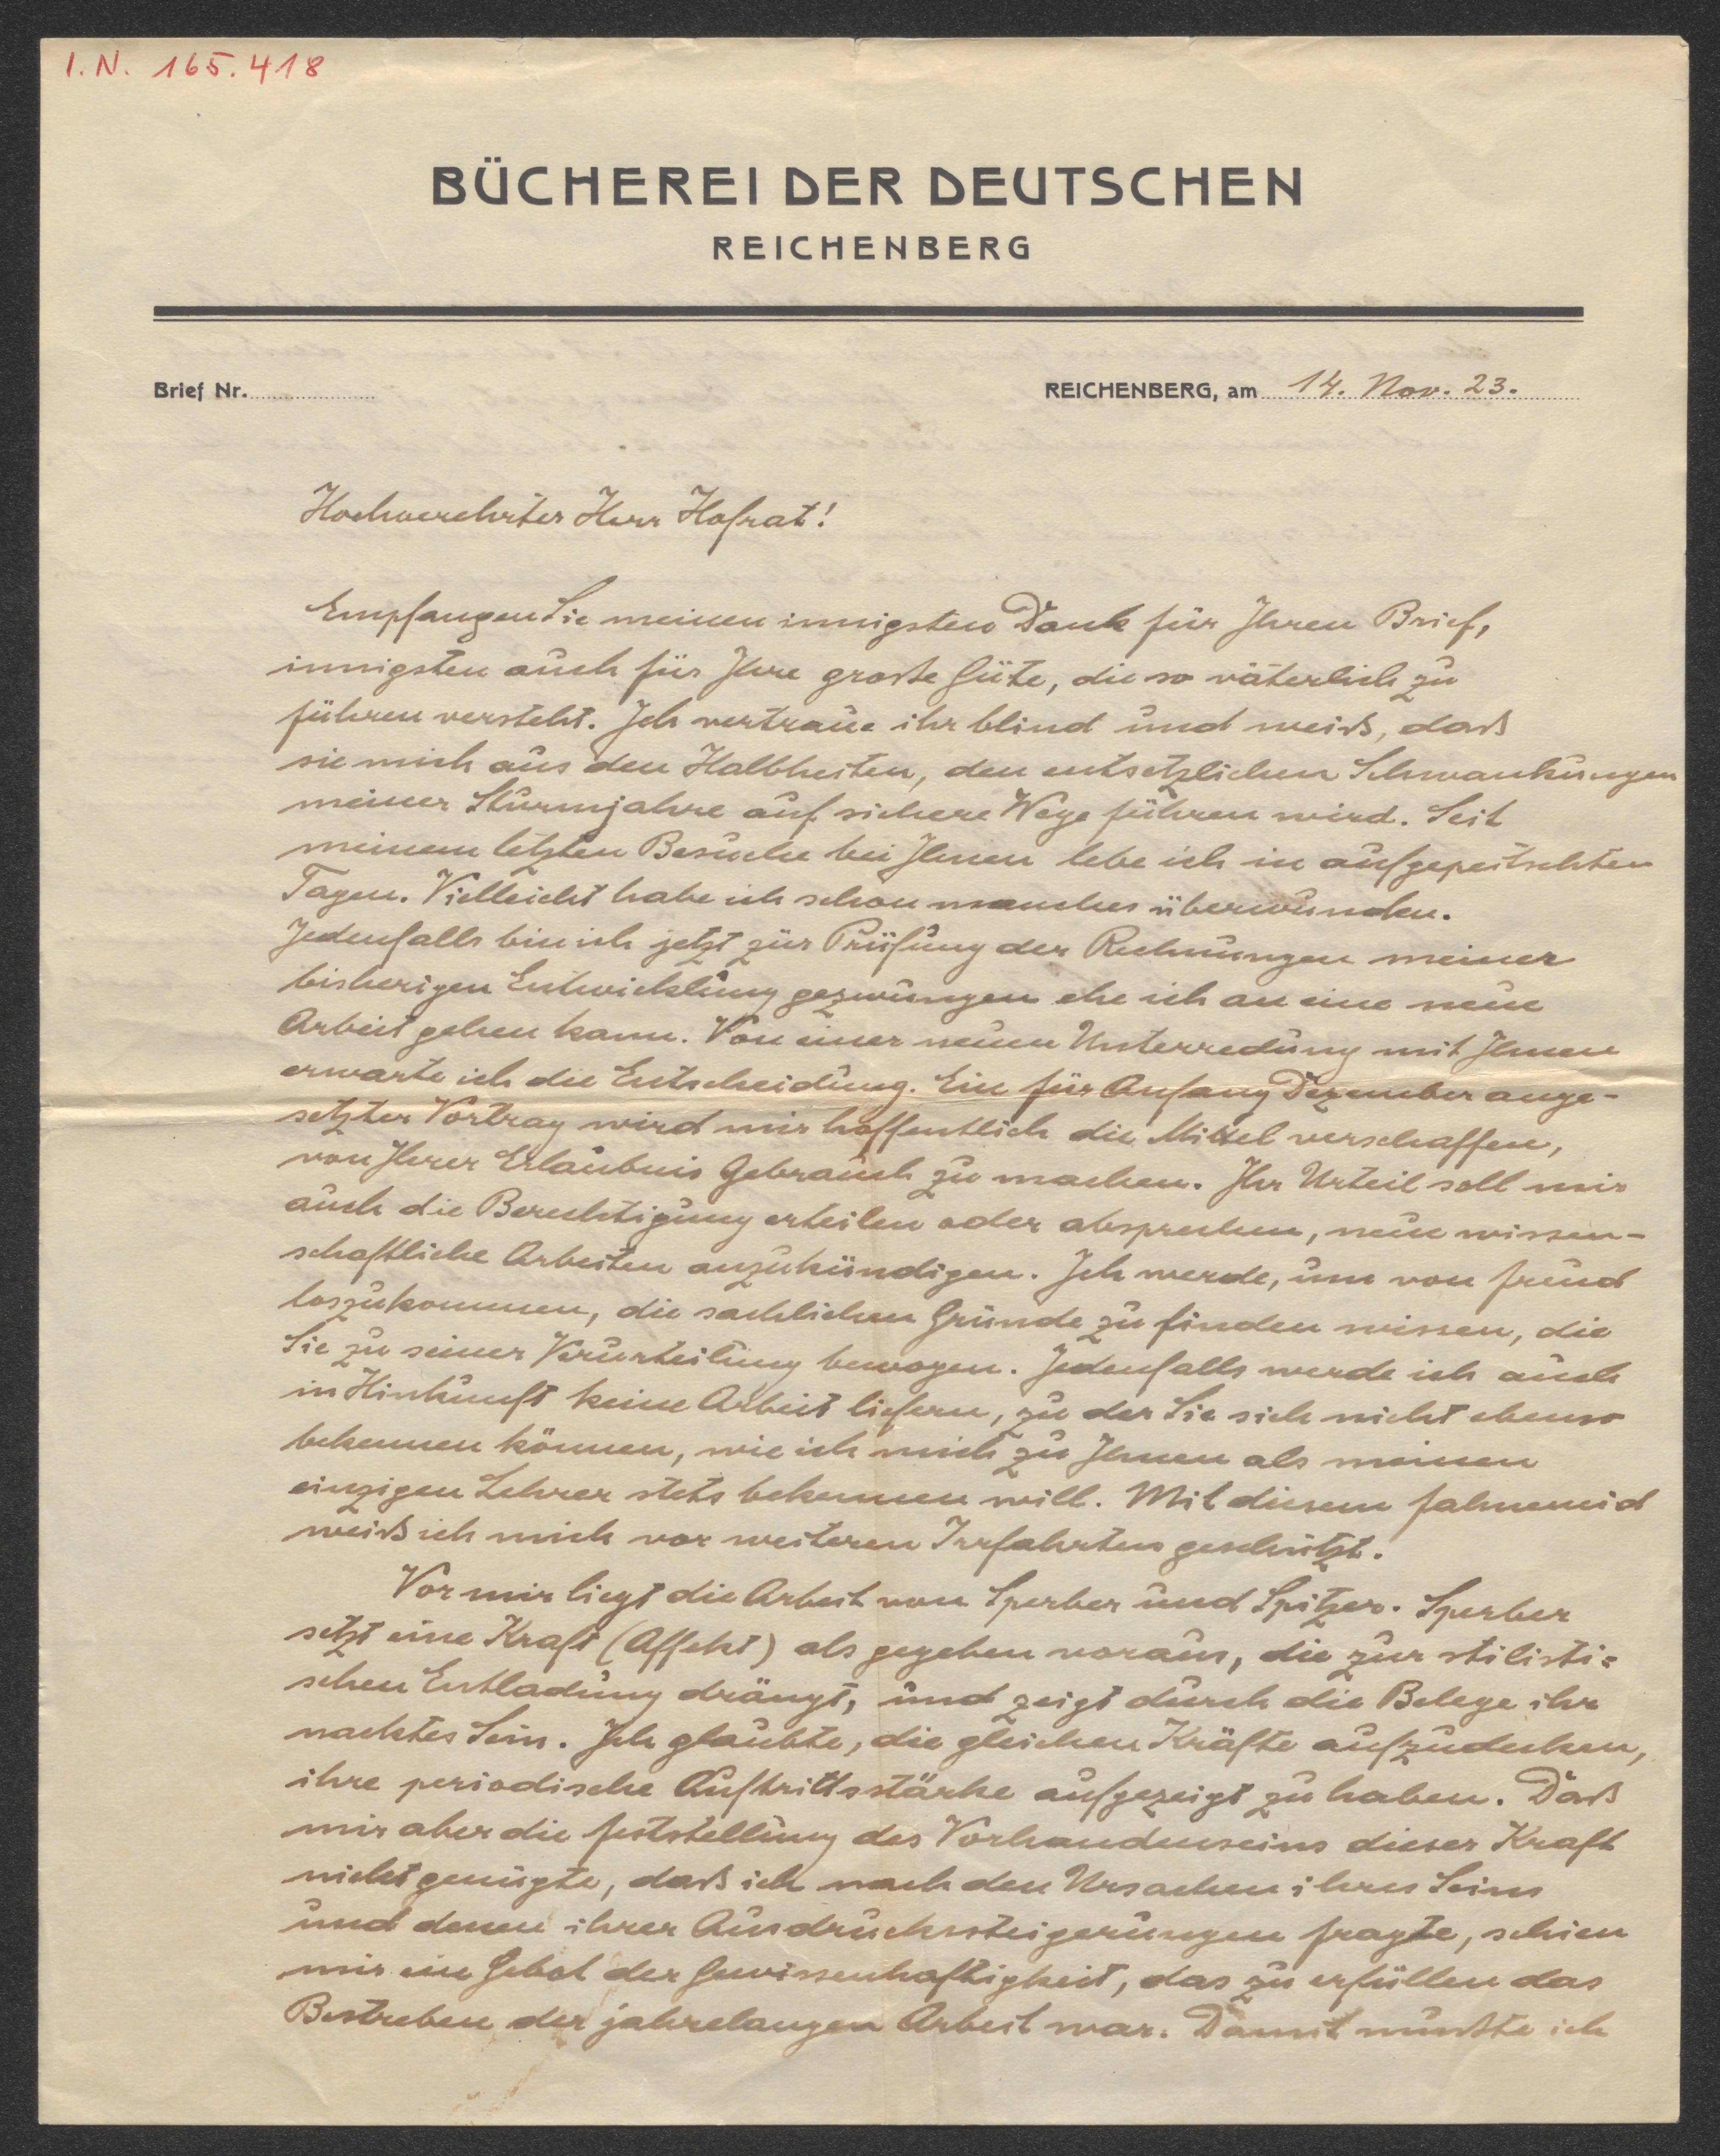 I.N. 165.418
BÜCHEREI DER DEUTSCHEN
REICHENBERG
Brief Nr.
REICHENBERG, am 14. Nov. 23.
Hochverehrter Herr Hofrat!
Empfangen Sie meinen innigsten Dank für Ihren Brief,
innigsten auch für Ihre große Güte, die so väterlich zu
führen versteht. Ich vertraue ihr blind und weiß, daß
sie mich aus den Halbheiten, den entsetzlichen Schwankungen
meiner Sturmjahre auf sichere Wege führen wird. Seit
meinem letzten Besuche bei Ihnen lebe ich in aufgepeitschten
Tagen. Vielleicht habe ich schon manches überwunden.
Jedenfalls bin ich jetzt zur Prüfung der Rechnungen meiner
bisherigen Entwicklung gezwungen ehe ich an eine neue
Arbeit gehen kann. Von einer neuen Unterredung mit Ihnen
erwarte ich die Entscheidung. Ein für Anfang Dezember ange-
setzter Vortrag wird mir hoffentlich die Mittel verschaffen,
von Ihrer Erlaubnis Gebrauch zu machen. Ihr Urteil soll mir
auch die Berechtigung erteilen oder absprechen, neue wissen-
schaftliche Arbeiten anzukündigen. Ich werde, um von Freud
loszukommen, die sachlichen Gründe zu finden wissen, die
Sie zu seiner Verurteilung bewogen. Jedenfalls werde ich auch
in Hinkunft keine Arbeit liefern, zu der Sie sich nicht ebenso
bekennen können, wie ich mich zu Ihnen als meinen
einzigen Lehrer stets bekennen will. Mit diesem Fahneneid
weiß ich mich vor weiteren Irrfahrten geschützt.
Vor mir liegt die Arbeit von Sperber und Spitzer. Sperber
setzt eine Kraft (Affekt) als gegeben voraus, die zur stilisti=
schen Entladung drängt, und zeigt durch die Belege ihr
nacktes Sein. Ich glaubte, die gleichen Kräfte aufzudecken,
ihre periodische Auftrittsstärke aufgezeigt zu haben. Daß
mir aber die Feststellung des Vorhandenseins dieser Kraft
nicht genügte, daß ich nach den Ursachen ihres Seins
und denen ihrer Ausdruckssteigerungen fragte, schien
mir ein Gebot der Gewissenhaftigkeit, das zu erfüllen das
Bestreben der jahrelangen Arbeit war. Damit mußte ich